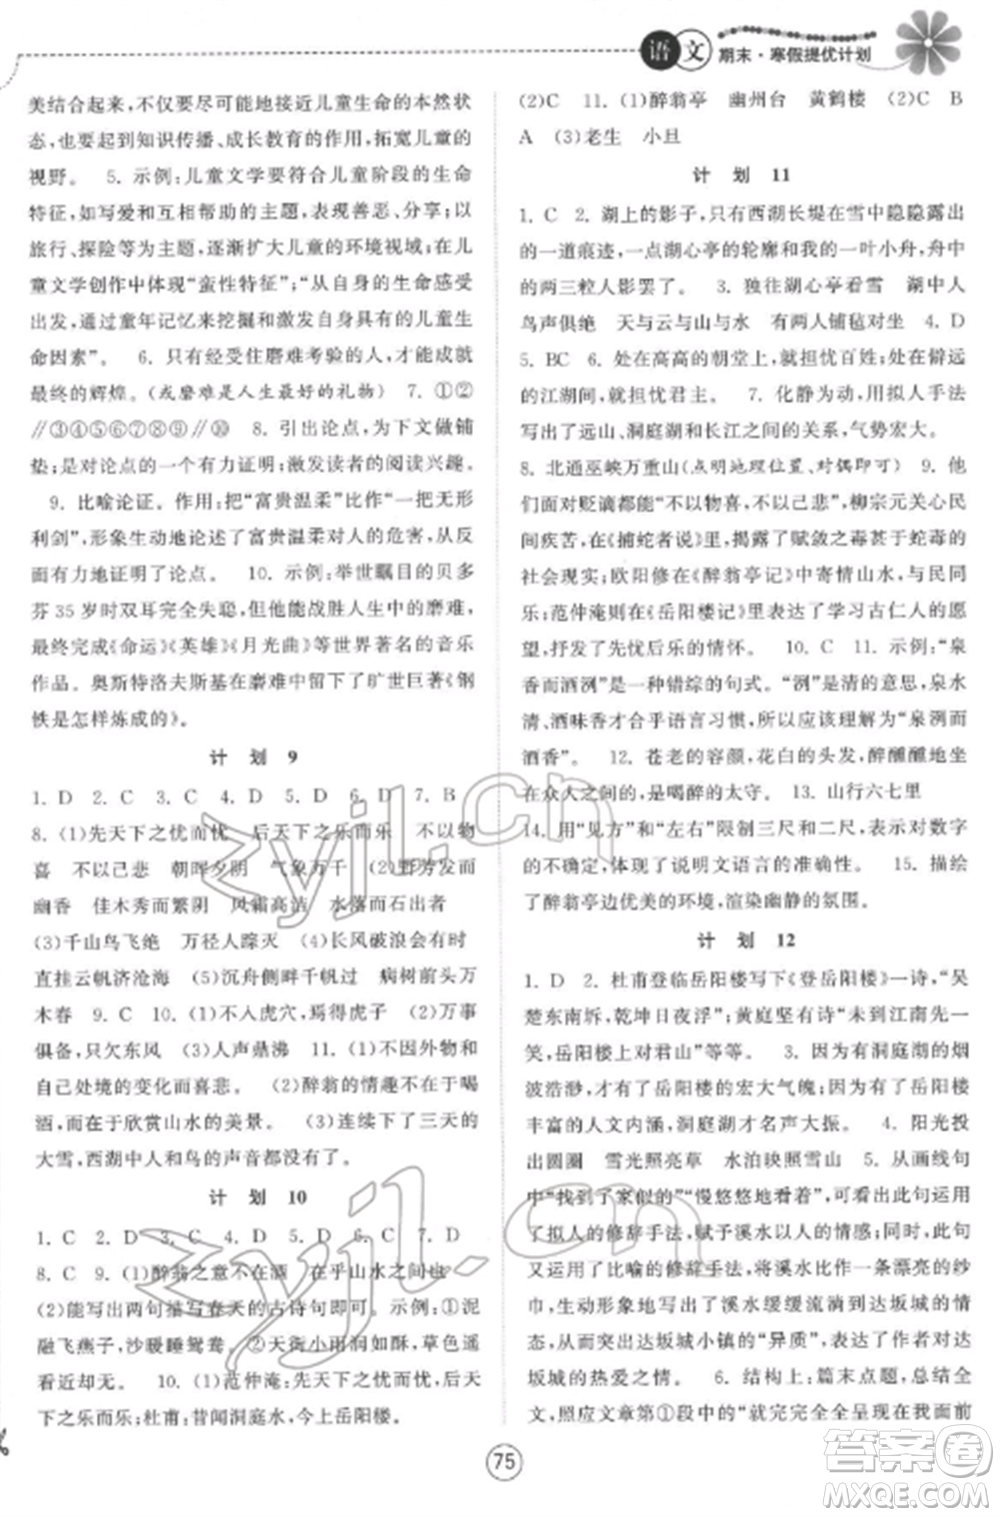 语文 期末·寒假提优计划
美结合起来,不仅要尽可能地接近儿童生命的本然状
态,也要达到知识传播、成长教育的作用,拓宽儿童的
视野。 5. 示例:儿童文学要符合儿童阶段的生命
特征,如写爱和互相帮助的主题,表现善恶、分享;以
旅行、探险等为主题,逐渐扩大儿童的环境视域;在儿
童文学创作中体现“蛮性特征”;“从自身的生命感觉
出发,通过童年记忆来挖掘和激发自身具有的儿童生
命因素”。 6. 只有经受住磨难考验的人,才能成就最
终的辉煌。(或磨难是人生最好的礼物) 7. ①②
∥③④⑤⑥⑦⑧⑨∥⑩ 8. 引出论点,为下文做铺
垫;成为论点的有力证明;激发读者的阅读兴趣。
9. 比喻论证。作用:把“富贵温柔”比作“一把无形
利剑”,形象生动地论证了富贵温柔对人的危害,从
反面有力地证明了论点。 10. 示例:举世瞩目的贝多
芬 35 岁时双耳完全失聪,但他能战胜人生中的磨难,
最终完成《命运》《英雄》《月光曲》等世界著名的音乐
作品。奥斯特洛夫斯基在磨难中写下了旷世巨著《钢
铁是怎样炼成的》。
计 划 9
1. D 2. C 3. C 4. D 5. D 6. D 7. B
8. (1)先天下之忧而忧 后天下之乐而乐 不以物
喜 不以己悲 朝晖夕阴 气象万千 (2)野芳发而
幽香 佳木秀而繁阴 风霜高洁 水落而石出者
(3)千山鸟飞绝 万径人踪灭 (4)长风破浪会有时
直挂云帆济沧海 (5)沉舟侧畔千帆过 病树前头万
木春 9. C 10. (1)不入虎穴,焉得虎子 (2)万事
俱备,只欠东风 (3)人声鼎沸 11. (1)不因外物和
自己处境的变化而喜悲。 (2)醉翁的情趣不在于喝
酒,而在于欣赏山水的美景。 (3)连续下了三天的
大雪,西湖中人和鸟的声音都没有了。
计 划 10
1. C 2. C 3. B 4. D 5. D 6. C 7. D
8. C 9. (1)醉翁之意不在酒 在乎山水之间也
(2)能写出两句描写春天的古诗句即可。示例:①泥
融飞燕子,沙暖睡鸳鸯 ②天街小雨润如酥,草色遥
看近却无 10. (1)范仲淹:先天下之忧而忧,后天
下之乐而乐;杜甫:昔闻洞庭水,今上岳阳楼。
(2)C 11. (1)醉翁亭 幽州台 黄鹤楼 (2)C B
A (3)老生 小旦
计 划 11
1. C 2. 湖上的影子,只有西湖长堤在雪中隐隐露出
的一道痕迹,一点湖心亭的轮廓和我的一叶小舟,舟中
的两三粒人影罢了。 3. 独往湖心亭看雪 湖中人
鸟声俱绝 天与云与山与水 有两人铺毡对坐 4. D
5. BC 6. 处在高高的朝堂上,就担忧百姓;处在僻远
的江湖间,就担忧君主。 7. 化静为动,用拟人手法
写出了远山、洞庭湖和长江之间的关系,气势宏大。
8. 北通巫峡万重山(点明地理位置、对偶即可) 9. 他
们面对贬谪都能“不以物喜,不以己悲”,柳宗元关心民
间疾苦,在《捕蛇者说》里,揭露了赋敛之毒甚于蛇毒的
社会现实;欧阳修在《醉翁亭记》中寄情山水,与民同
乐;范仲淹则在《岳阳楼记》中表达了学习古仁人的愿
望,抒发了先忧后乐的情怀。 10. C 11. 示例:“泉
香而酒洌”是一种错综的句式。“洌”是清的意思,泉水
清、酒味香才合乎语言习惯,所以应理解为“泉洌而
酒香”。 12. 苍老的容颜,花白的头发,醉醺醺地坐
在众人之间的,是喝醉了的太守。 13. 山行六七里
14. 用“见方”和“左右”限制三尺和二尺,表示数量
的不确定,体现了说明文语言的准确性。 15. 描绘
了醉翁亭边优美的环境,渲染幽静的氛围。
计 划 12
1. D 2. 杜甫登临岳阳楼写下《登岳阳楼》一诗,“吴
楚东南坼,乾坤日夜浮”;黄庭坚的“未到江南先一
笑,岳阳楼上对君山”等等。 3. 因为有洞庭湖的烟
波浩渺,才有了岳阳楼的宏大气魄;因为有了岳阳楼
丰富的人文内涵,洞庭湖才名声大振。 4. 阳光投
出圆圈 雪光照亮草 水泊映照雪山 5. 从画线句
中“找到了家似的”“慢悠悠地看着”可以看出,该句用
了拟人的修辞手法,赋予溪水以人的情感;此句
运用了比喻的修辞手法,把溪水比作一条漂亮的纱
巾,生动形象地写出了溪水缓缓流淌到达坂城的情
态,从而突出达坂城小镇的“异质”,表达了作者对达
坂城的热爱之情。 6. 结构上:篇末点题,总结全
文,照应文章第①段中的“就完完全全呈现在我面前
75
zyjl.cn
zyjl.cn
答案圈
MXQE.COM